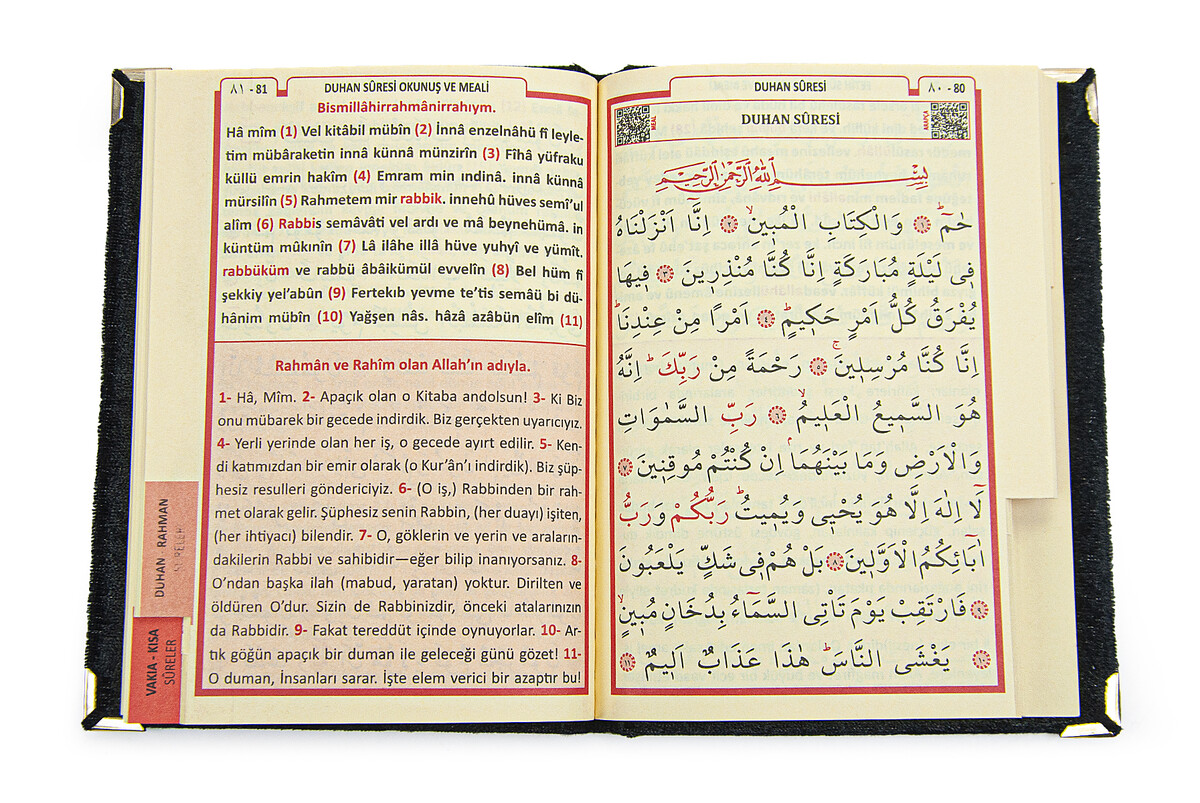 ٨١ - 81
DUHAN SÛRESİ OKUNUŞ VE MEALİ
Bismillâhirrahmânirrahıym.
Hâ mîm (1) Vel kitâbil mübîn (2) İnnâ enzelnâhü fî leyle-
tim mübâraketin innâ künnâ münzirîn (3) Fîhâ yüfraku
küllü emrin hakîm (4) Emram min ındinâ. innâ künnâ
mürsilîn (5) Rahmetem mir rabbik. innehû hüves semî'ul
alîm (6) Rabbis semâvâti vel ardı ve mâ beynehümâ. in
küntüm mûkınîn (7) Lâ ilâhe illâ hüve yuhyî ve yümît.
rabbüküm ve rabbü âbâikümül evvelîn (8) Bel hüm fî
şekkiy yel'abûn (9) Fertekıb yevme te'tis semâü bi dü-
hânim mübîn (10) Yağşen nâs. hâzâ azâbün elîm (11)
Rahmân ve Rahîm olan Allah'ın adıyla.
1- Hâ, Mîm. 2- Apaçık olan o Kitaba andolsun! 3- Ki Biz
onu mübarek bir gecede indirdik. Biz gerçekten uyarıcıyız.
4- Yerli yerinde olan her iş, o gecede ayırt edilir. 5- Ken-
di katımızdan bir emir olarak (o Kur'ân'ı indirdik). Biz şüp-
hesiz resulleri göndericiyiz. 6- (O iş,) Rabbinden bir rah-
met olarak gelir. Şüphesiz senin Rabbin, (her duayı) işiten,
(her ihtiyacı) bilendir. 7- O, göklerin ve yerin ve araların-
dakilerin Rabbi ve sahibidir—eğer bilip inanıyorsanız. 8-
O'ndan başka ilah (mabud, yaratan) yoktur. Dirilten ve
öldüren O'dur. Sizin de Rabbinizdir, önceki atalarınızın
da Rabbidir. 9- Fakat tereddüt içinde oynuyorlar. 10- Ar-
tık göğün apaçık bir duman ile geleceği günü gözet! 11-
O duman, İnsanları sarar. İşte elem verici bir azaptır bu!
DUHAN - RAHMAN
SÛRELER
VAKIA - KISA
SÛRELER
DUHAN SÛRESİ
٨٠ - 80
MEAL
DUHAN SÛRESİ
ARAPÇA
بِسْمِ اللّٰهِ الرَّحْمٰنِ الرَّحِيمِ
حٰمٓ ۜ ﴿١﴾ وَالْكِتَابِ الْمُبٖينِ ۙ ﴿٢﴾ اِنَّٓا اَنْزَلْنَاهُ
فٖى لَيْلَةٍ مُبَارَكَةٍ اِنَّا كُنَّا مُنْذِرٖينَ ﴿٣﴾ فٖيهَا
يُفْرَقُ كُلُّ اَمْرٍ حَكٖيمٍ ۜ ﴿٤﴾ اَمْرًا مِنْ عِنْدِنَا ۜ
اِنَّا كُنَّا مُرْسِلٖينَ ۚ ﴿٥﴾ رَحْمَةً مِنْ رَبِّكَ ۜ اِنَّهُ
هُوَ السَّمٖيعُ الْعَلٖيمُ ۙ ﴿٦﴾ رَبِّ السَّمٰوَاتِ
وَالْاَرْضِ وَمَا بَيْنَهُمَا ۢ اِنْ كُنْتُمْ مُوقِنٖينَ ﴿٧﴾
لَٓا اِلٰهَ اِلَّا هُوَ يُحْيٖى وَيُمٖيتُ ۜ رَبُّكُمْ وَرَبُّ
اٰبَٓائِكُمُ الْاَوَّلٖينَ ﴿٨﴾ بَلْ هُمْ فٖى شَكٍّ يَلْعَبُونَ
﴿٩﴾ فَارْتَقِبْ يَوْمَ تَاْتِى السَّمَٓاءُ بِدُخَانٍ مُبٖينٍ ۙ
﴿١٠﴾ يَغْشَى النَّاسَ ۜ هٰذَا عَذَابٌ اَلٖيمٌ ﴿١١﴾